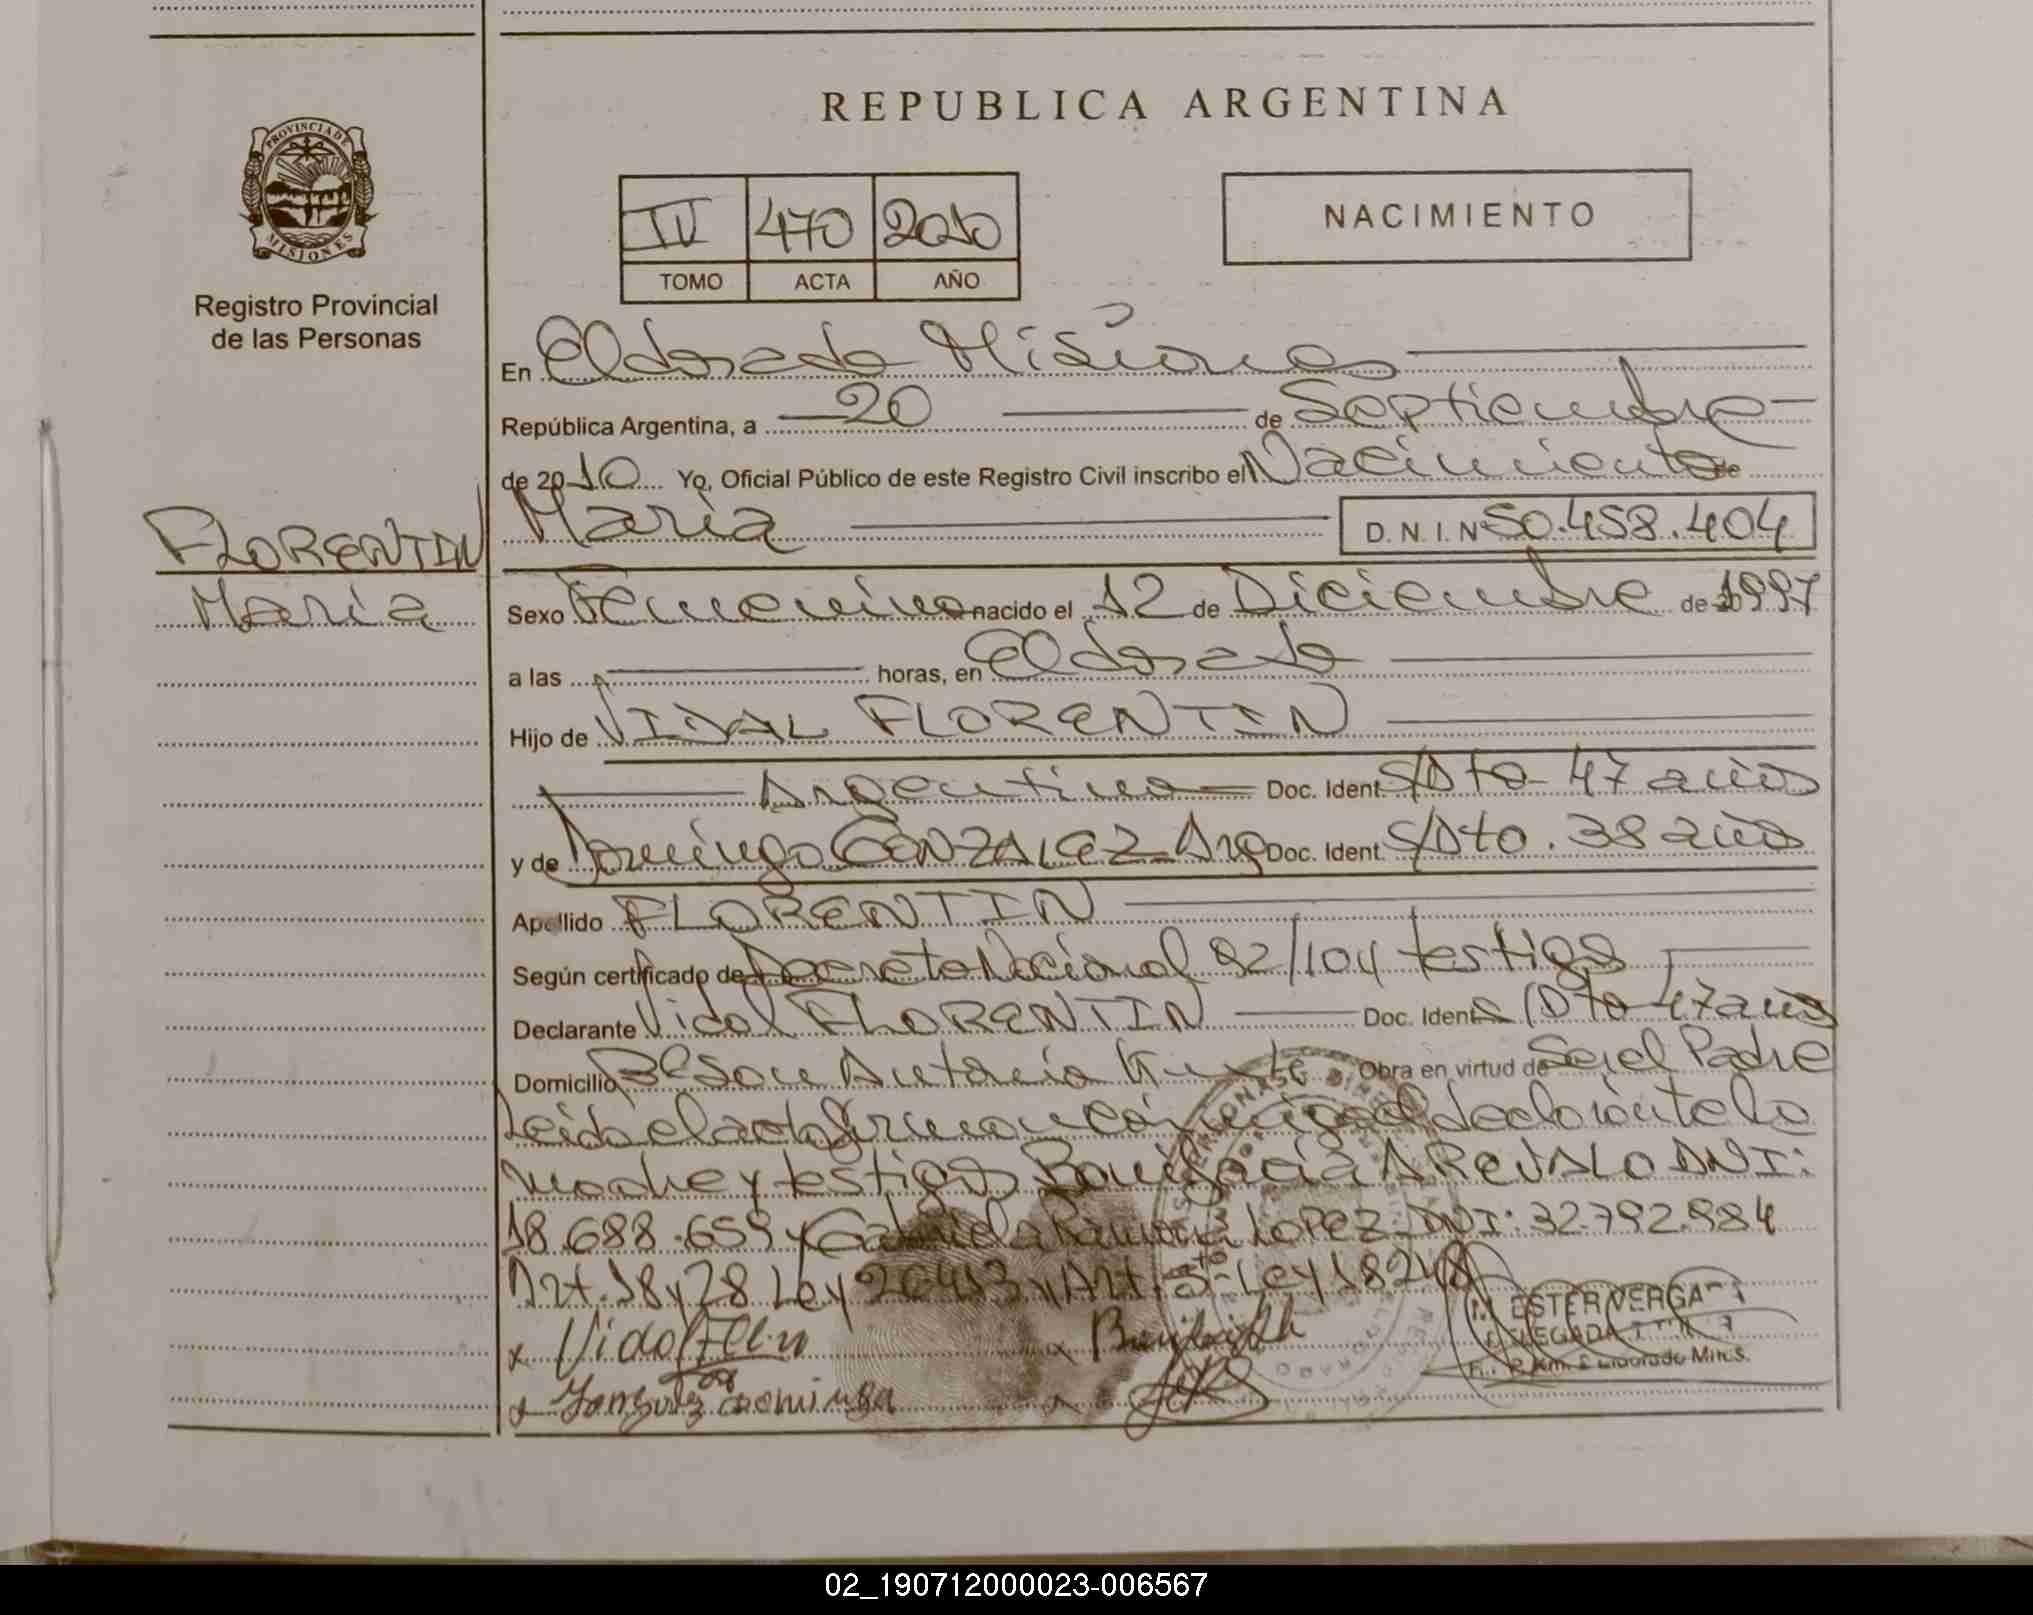 REPUBLICA ARGENTINA
PROVINCIA DE
MISIONES
Registro Provincial
de las Personas
IV 470 2010
TOMO ACTA AÑO
NACIMIENTO
En Eldorado Misiones
República Argentina, a 20 de Septiembre
de 2010 Yo, Oficial Público de este Registro Civil inscribo el Nacimiento de
FLORENTIN
Maria
Maria D.N.I.Nº 50.458.404
Sexo Femenino nacido el 12 de Diciembre de 1997
a las horas, en Eldorado
Hijo de VIDAL FLORENTIN
Argentino Doc. Ident. S/Dto 47 años
y de Dominga GONZALEZ Arg Doc. Ident. S/Dto. 38 años
Apellido FLORENTIN
Según certificado de Decreto Nacional 92/104 testigos
Declarante Vidal FLORENTIN Doc. Ident. S/Dto 47 años
Domicilio Antonio Obra en virtud de Ser el Padre
Leido el acta firman conmigo el declarante la
madre y testigos Bonifacia AREVALO DNI:
18.688.659 y Gabriela Ramona LOPEZ DNI: 32.792.984
Art. 18 y 28 Ley 26413 y Art. 5to Ley 18248
x Vidal x
x
M. ESTER VERGARA
DELEGADA
Eldorado Mnes.
02_190712000023-006567